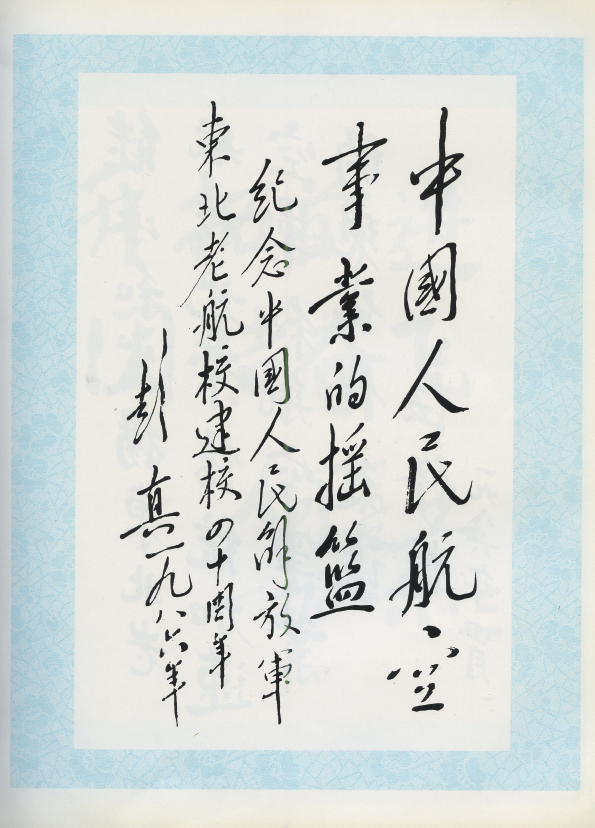 中國人民航空
事業的摇籃
紀念中國人民解放軍
東北老航校建校四十周年
彭真一九八六年